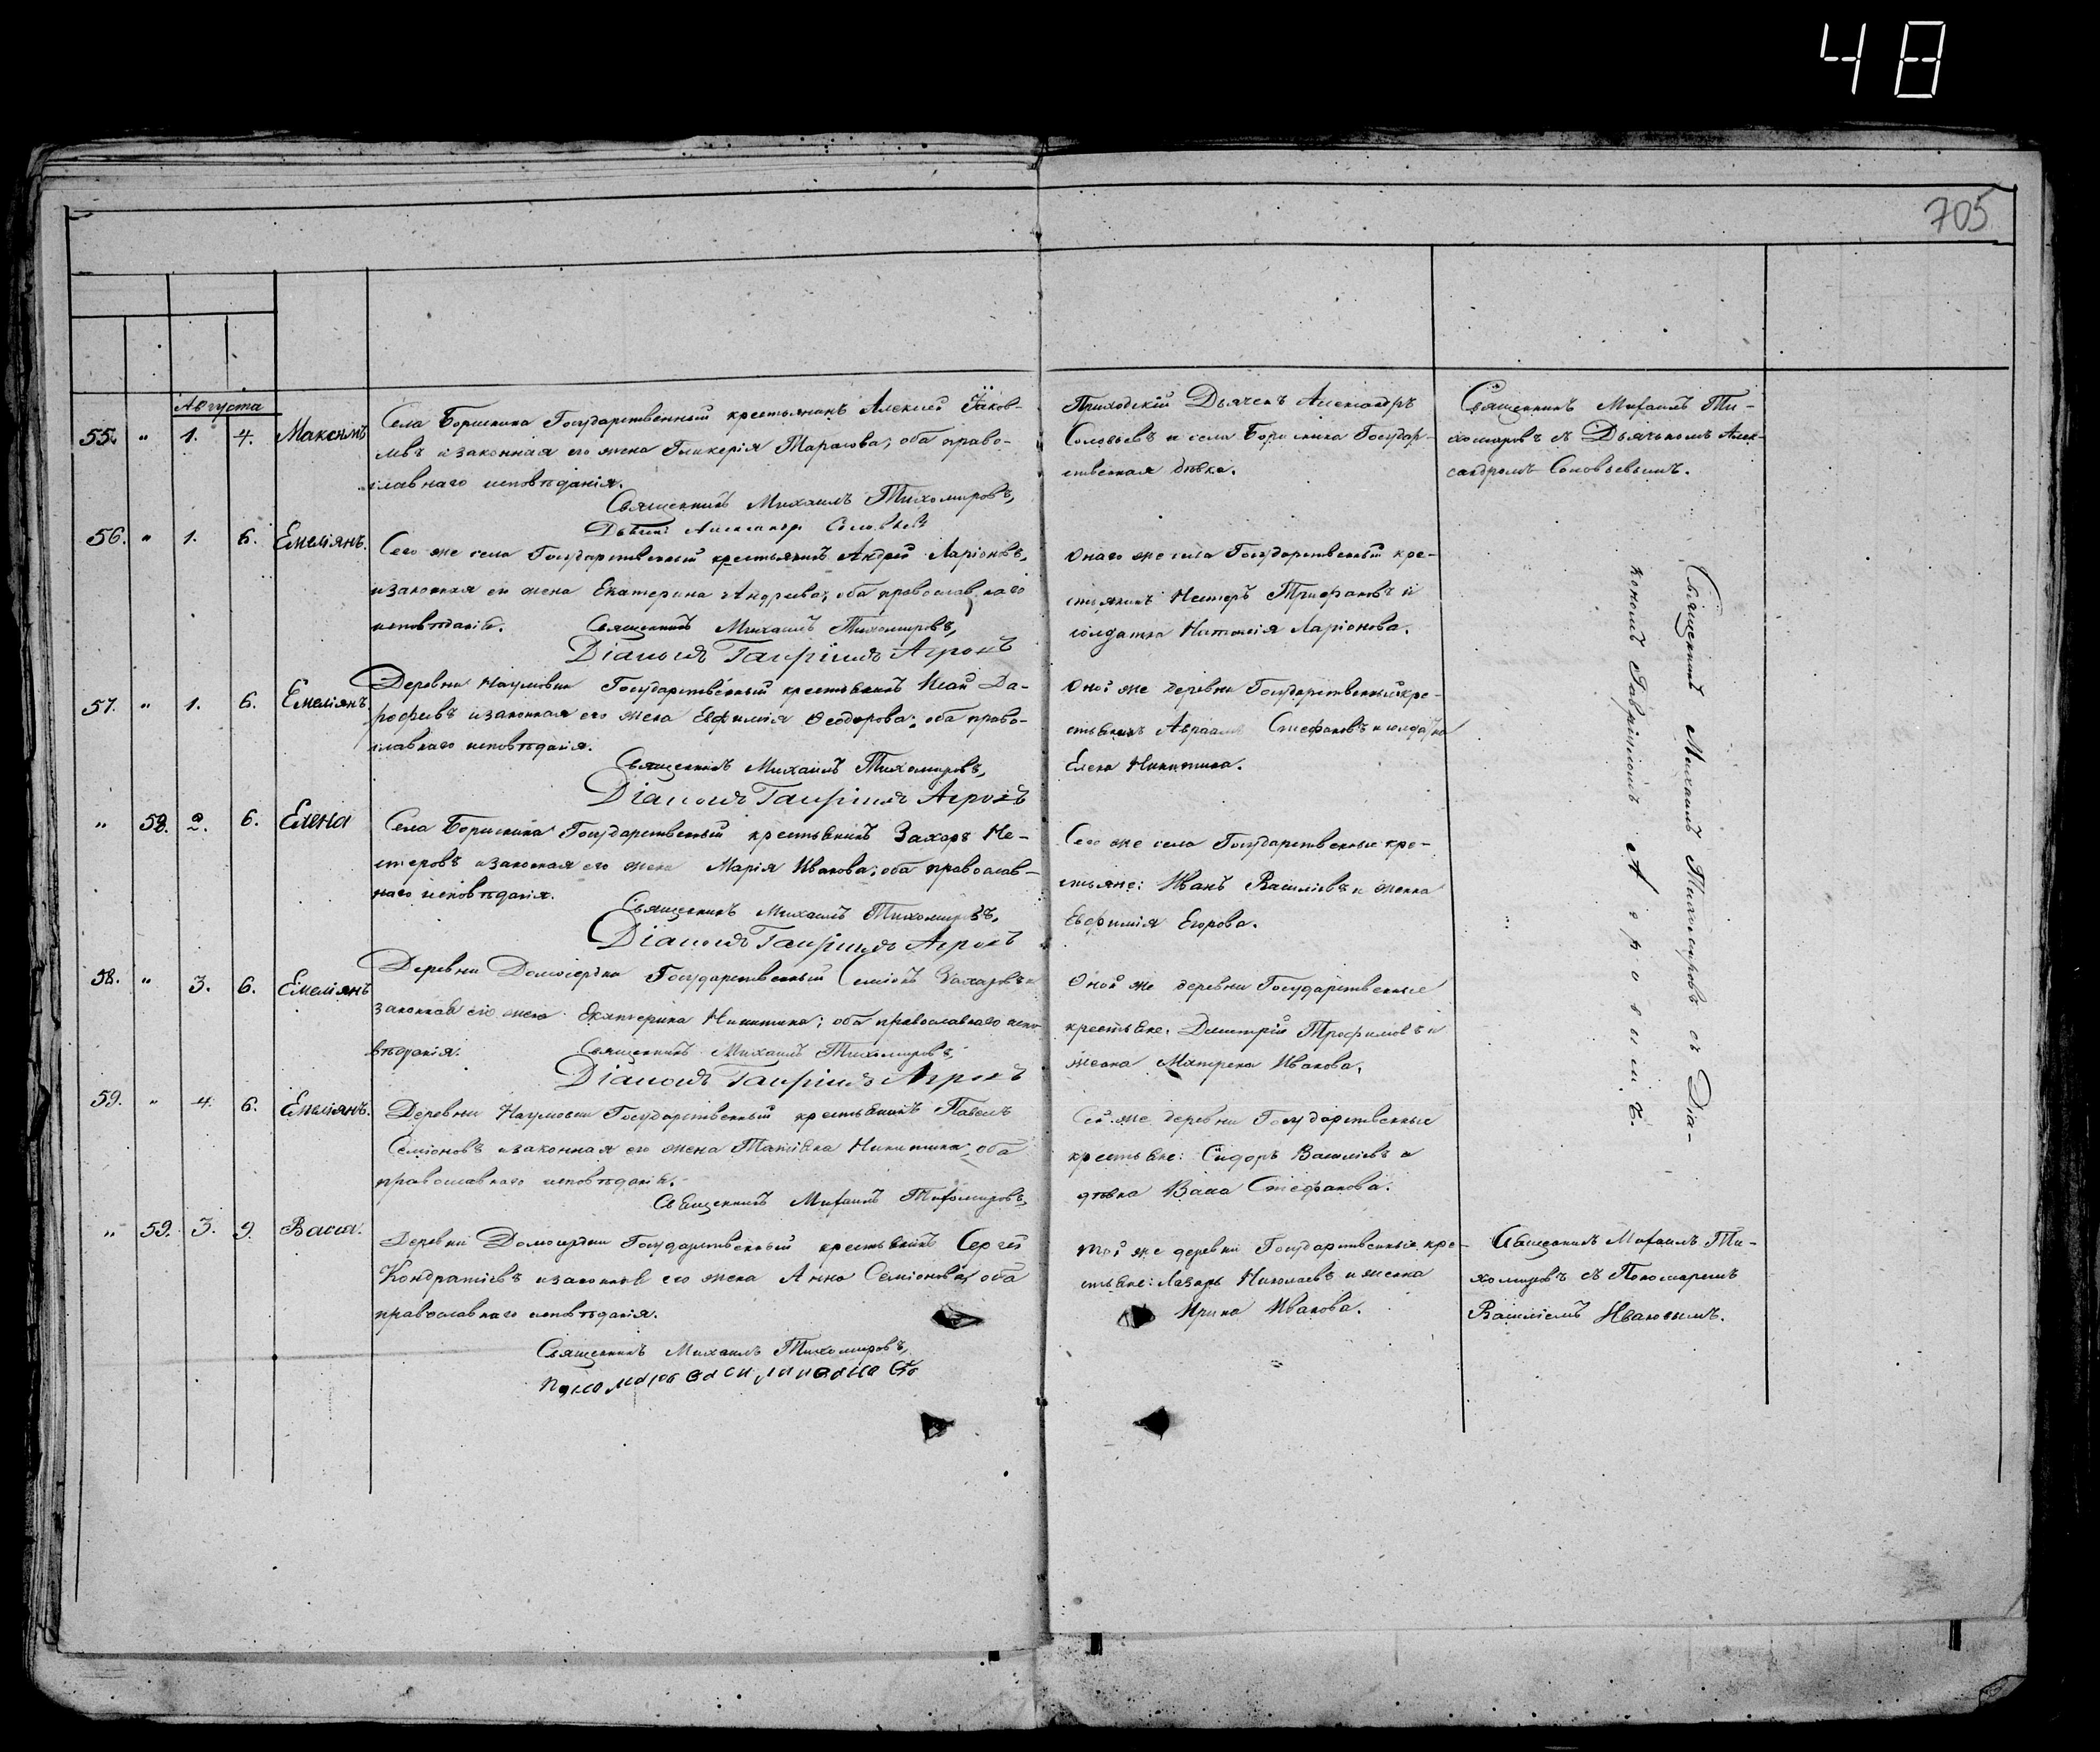 48
705
Августа
55. " 1. 4. Максимъ
Села Борискина Государственный крестьянинъ Алексей Яков-
левъ и законная его жена Гликерія Тарасова; оба право-
славнаго исповѣданія.
Священникъ Михаилъ Тихомировъ,
Дьячекъ Александръ Соловьевъ
Приходскій Дьячекъ Александръ
Соловьевъ и села Борискина Государ-
ственная дѣвка.
Священникъ Михаилъ Ти-
хомировъ съ Дьячькомъ Алек-
сандромъ Соловьевымъ.
56. " 1. 6. Емеліянъ.
Сего же села Государственный крестьянинъ Андрей Ларіоновъ,
и законная его жена Екатерина Андреева; оба православнаго
исповѣданія. Священникъ Михаилъ Тихомировъ,
Діаконъ Гавріилъ Агровъ
Онаго же села Государственный кре-
стьянинъ Несторъ Трифановъ и
солдатка Наталія Ларіонова.
57. " 1. 6. Емеліянъ.
Деревни Наумовки Государственный крестьянинъ Исай До-
рофеевъ и законная его жена Евфимія Ѳеодорова; оба право-
славнаго исповѣданія.
Священникъ Михаилъ Тихомировъ,
Діаконъ Гавріилъ Агровъ
Оной же деревни Государственный кре-
стьянинъ Авраамъ Стефановъ и солдатка
Елена Никитина.
" 58. 2. 6. Елена
Села Борискина Государственный крестьянинъ Захаръ Не-
стеровъ и законная его жена Марія Иванова; оба православ-
наго исповѣданія.
Священникъ Михаилъ Тихомировъ,
Діаконъ Гавріилъ Агровъ
Сего же села Государственные кре-
стьяне: Иванъ Василіевъ и женка
Евфимія Егорова.
58. " 3. 6. Емеліянъ
Деревни Государственный Семіонъ Захаровъ и
законная его жена Екатерина Никитина; оба православнаго испо-
вѣданія. Священникъ Михаилъ Тихомировъ,
Діаконъ Гавріилъ Агровъ
Оной же деревни Государственные
крестьяне: Димитрій Трофимовъ и
женка Матрена Иванова.
59. " 4. 6. Емеліянъ.
Деревни Наумовки Государственный крестьянинъ Павелъ
Семіоновъ и законная его жена Татіяна Никитина; оба
православнаго исповѣданія.
Священникъ Михаилъ Тихомировъ,
Сей же деревни Государственные
крестьяне: Сидоръ Василіевъ и
дѣвка Васса Стефанова.
Священникъ Михаилъ Тихомировъ съ Діа-
кономъ Гавріиломъ Агровымъ.
" 59. 3. 9. Васса.
Деревни Государственный крестьянинъ Сергей
Кондратіевъ и законная его жена Анна Семіонова; оба
православнаго исповѣданія.
Священникъ Михаилъ Тихомировъ,
Той же деревни Государственные кре-
стьяне: Лазарь Николаевъ и женка
Ирина Иванова.
Священникъ Михаилъ Ти-
хомировъ съ Пономаремъ
Василіемъ Ивановымъ.